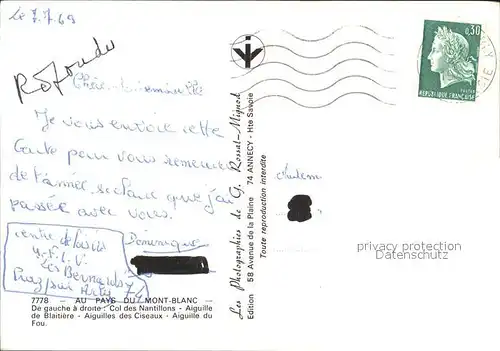 le 7.7.69
Je vous envoie cette
carte pour vous remercier
de l'année scolaire que j'ai
passée avec vous.
Dominique
centre de
Les Bernards
Praz sur Arly 74
7778 — AU PAYS DU MONT-BLANC —
De gauche à droite : Col des Nantillons - Aiguille
de Blaitière - Aiguilles des Ciseaux - Aiguille du
Fou.
Les Photographies de G. Rossat-Mignod
Edition 58 Avenue de la Plaine 74 ANNECY - Hte Savoie
Toute reproduction interdite
0,30
REPUBLIQUE FRANÇAISE
privacy protection
Datenschutz